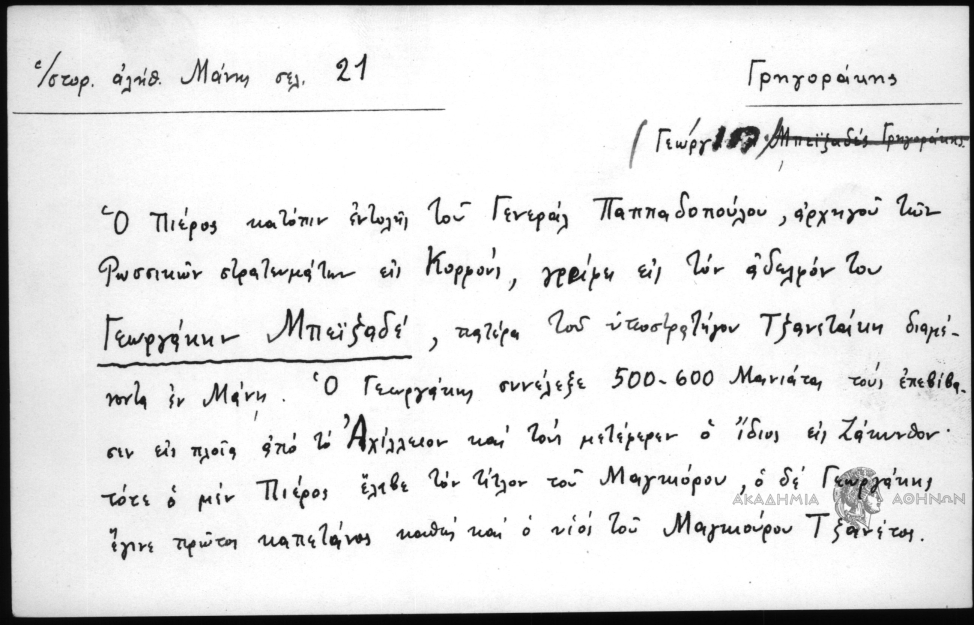 Ἱστορ. ἀλήθ. Μάνης σελ. 21
Γρηγοράκης
(Γεώργ Μπεϊζαδές Γρηγοράκης
Ὁ Πιέρος κατόπιν ἐντολῆς τοῦ Γενεράλ Παππαδοπούλου, ἀρχηγοῦ τῶν
Ρωσσικῶν στρατευμάτων εἰς Κορφούς, γράφει εἰς τόν ἀδελφόν του
Γεωργάκην Μπεϊζαδέ, πατέρα τοῦ ὑποστρατήγου Τζανετάκη διαμέ-
νοντα ἐν Μάνῃ. Ὁ Γεωργάκης συνέλεξε 500-600 Μανιάτας τούς ἐπεβίβα-
σεν εἰς πλοῖα ἀπό τό Ἀχίλλειον καί τούς μετέφερεν ὁ ἴδιος εἰς Ζάκυνθον·
τότε ὁ μέν Πιέρος ἔλαβε τόν τίτλον τοῦ Μαγκιόρου, ὁ δέ Γεωργάκης
ἔγινε πρῶτος καπετάνος καθώς καί ὁ υἱός τοῦ Μαγκιούρου Τζανέτος.
ΑΚΑΔΗΜΙΑ ΑΘΗΝΩΝ